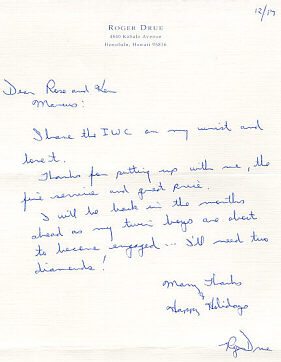 12/17
ROGER DRUE
4840 Kahala Avenue
Honolulu, Hawaii 96816
Dear Rose and Ken
Marcus:
I have the IWC on my wrist and
love it.
Thanks for putting up with me, the
fine service and great price.
I will be back in the months
ahead as my twin boys are about
to become engaged... I'll need two
diamonds!
Many Thanks
Happy Holidays
Roger Drue